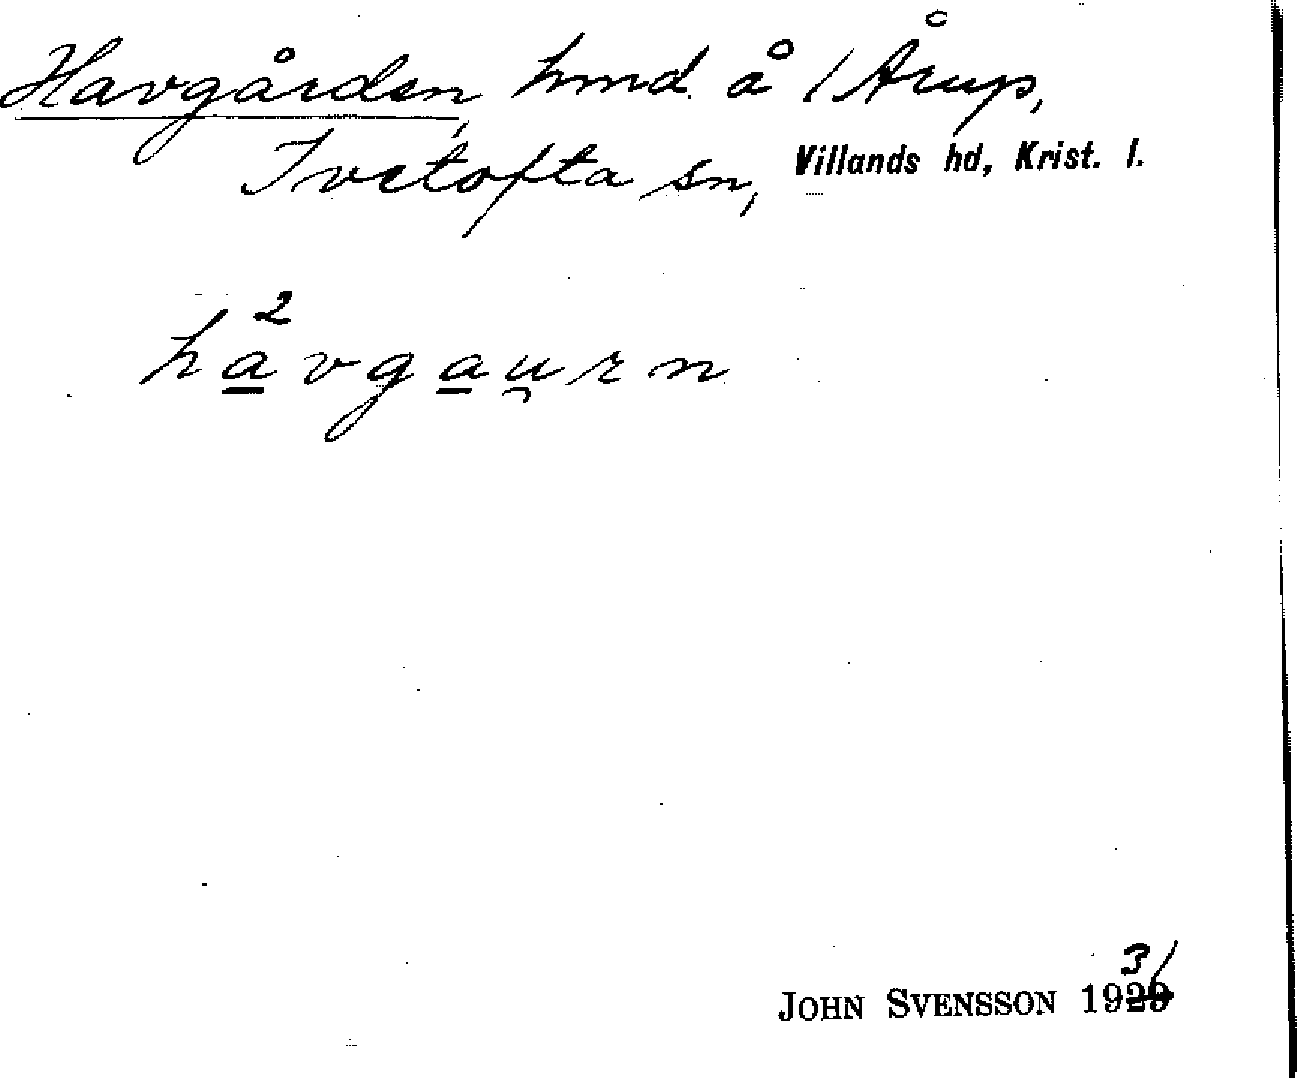 Havgården, hmd. å 1 Årup,
Ivetofta sn, Villands hd, Krist. l.
ha²vgau̯rn
JOHN SVENSSON 1931